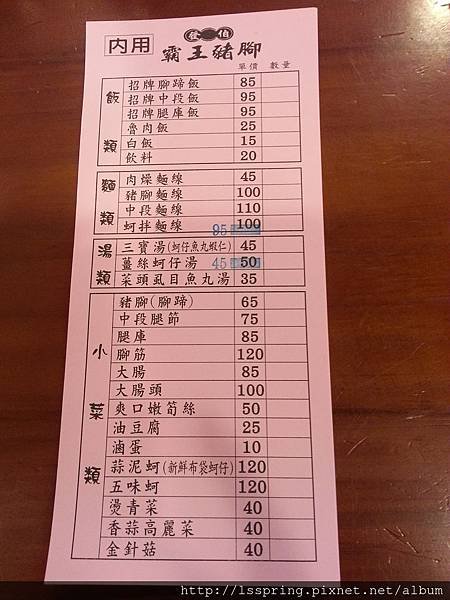 內用
發 伯
霸王豬腳
單價 數量
飯類
招牌腳蹄飯 85
招牌中段飯 95
招牌腿庫飯 95
魯肉飯 25
白飯 15
飲料 20
麵類
肉燥麵線 45
豬腳麵線 100
中段麵線 110
蚵拌麵線 100
95
湯類
三寶湯(蚵仔魚丸蝦仁) 45
薑絲蚵仔湯 50
45
菜頭虱目魚丸湯 35
小菜類
豬腳(腳蹄) 65
中段腿節 75
腿庫 85
腳筋 120
大腸 85
大腸頭 100
爽口嫩筍絲 50
油豆腐 25
滷蛋 10
蒜泥蚵(新鮮布袋蚵仔) 120
五味蚵 120
燙青菜 40
香蒜高麗菜 40
金針菇 40
http://lsspring.pixnet.net/album